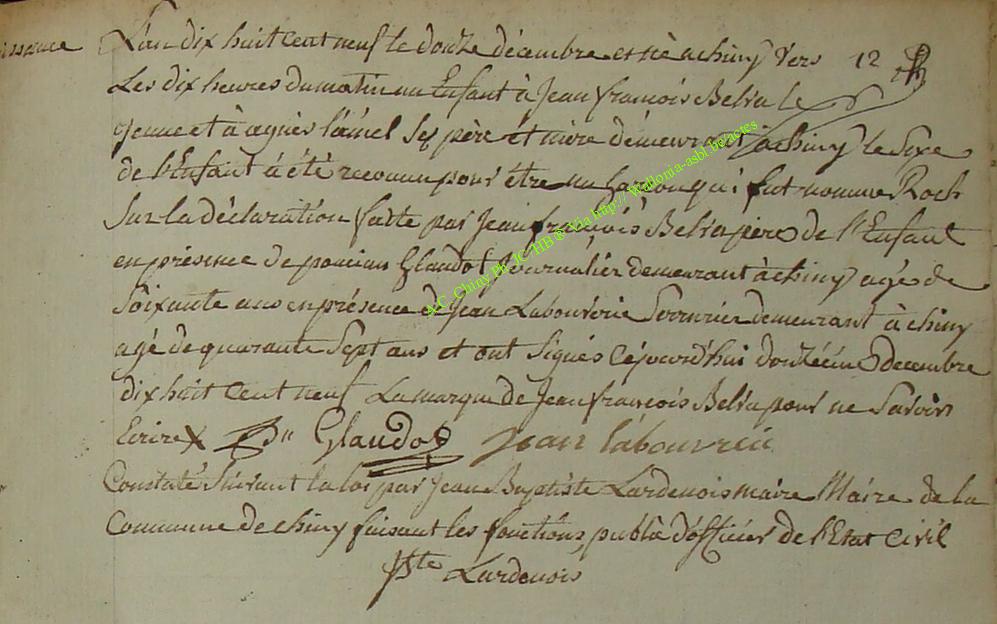 issance L'an dix huit cent neuf le douze décembre est né a chiny vers 12
Les dix heures du matin un Enfant à Jean françois Belva le
jeune et à agnès ses père et mère démeurant a chiny le Sexe
de l'Enfant à été reconnu pour être un Garcon qui fut nommé Roch
Sur la déclaration faite par Jean françois Belva père de l'Enfant
en présence de poncian Glaudot Journalier demeurant à chiny agé de
Soixante ans en présence de Jean Labouverie Serrurier demeurant à chiny
agé de quarante Sept ans et ont Signés cejourd'hui douzécime decembre
dix huit cent neuf La marque de Jean françois Belva pour ne Savoir
Ecrire X Glaudot Jean labouvrie
Constaté Suivant la loi par Jean Baptiste Lardenois maire Maire de la
Commune de chiny faisant les fonctions public d'officier de l'Etat Civil
Bte Lardenois
A.C. Chiny Ph. JC HB ® Via http:// Wallonia-asbl.be/actes